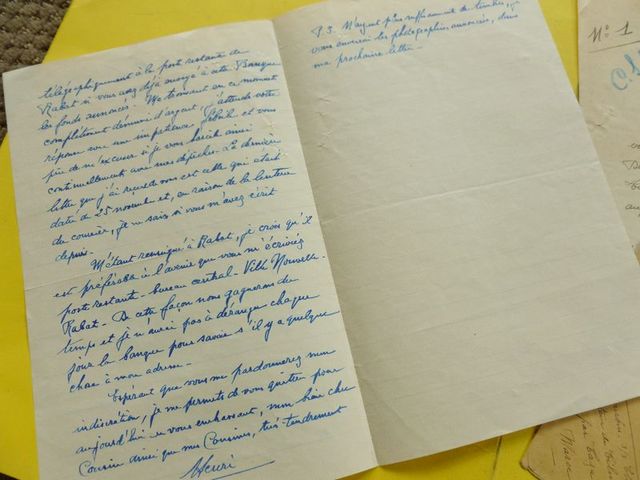 télégraphiquement à la poste restante de
Rabat si vous avez déjà envoyé à cette Banque
les fonds annoncés. Me trouvant en ce moment
complètement démuni d'argent, j'attends votre
réponse avec une impatience fébrile et vous
prie de m'excuser si je vous harcèle ainsi
continuellement avec mes dépêches. La dernière
lettre que j'ai reçue de vous est celle qui était
datée du 25 novembre et, en raison de la lenteur
du courrier, je ne sais si vous m'avez écrit
depuis.
M'étant renseigné à Rabat, je crois qu'il
est préférable à l'avenir que vous m'écriviez
poste restante - bureau central - Ville Nouvelle -
Rabat - De cette façon nous gagnerons du
temps et je n'aurai pas à déranger chaque
jour la banque pour savoir s'il y a quelque
chose à mon adresse.
Espérant que vous me pardonnerez mon
indiscrétion, je me permets de vous quitter pour
aujourd'hui en vous embrassant, mon bien cher
Cousin ainsi que mes Cousines, très tendrement
Henri
P.S. N'ayant plus suffisamment de timbres, je
vous enverrai les photographies annoncées, dans
ma prochaine lettre.
N° 1